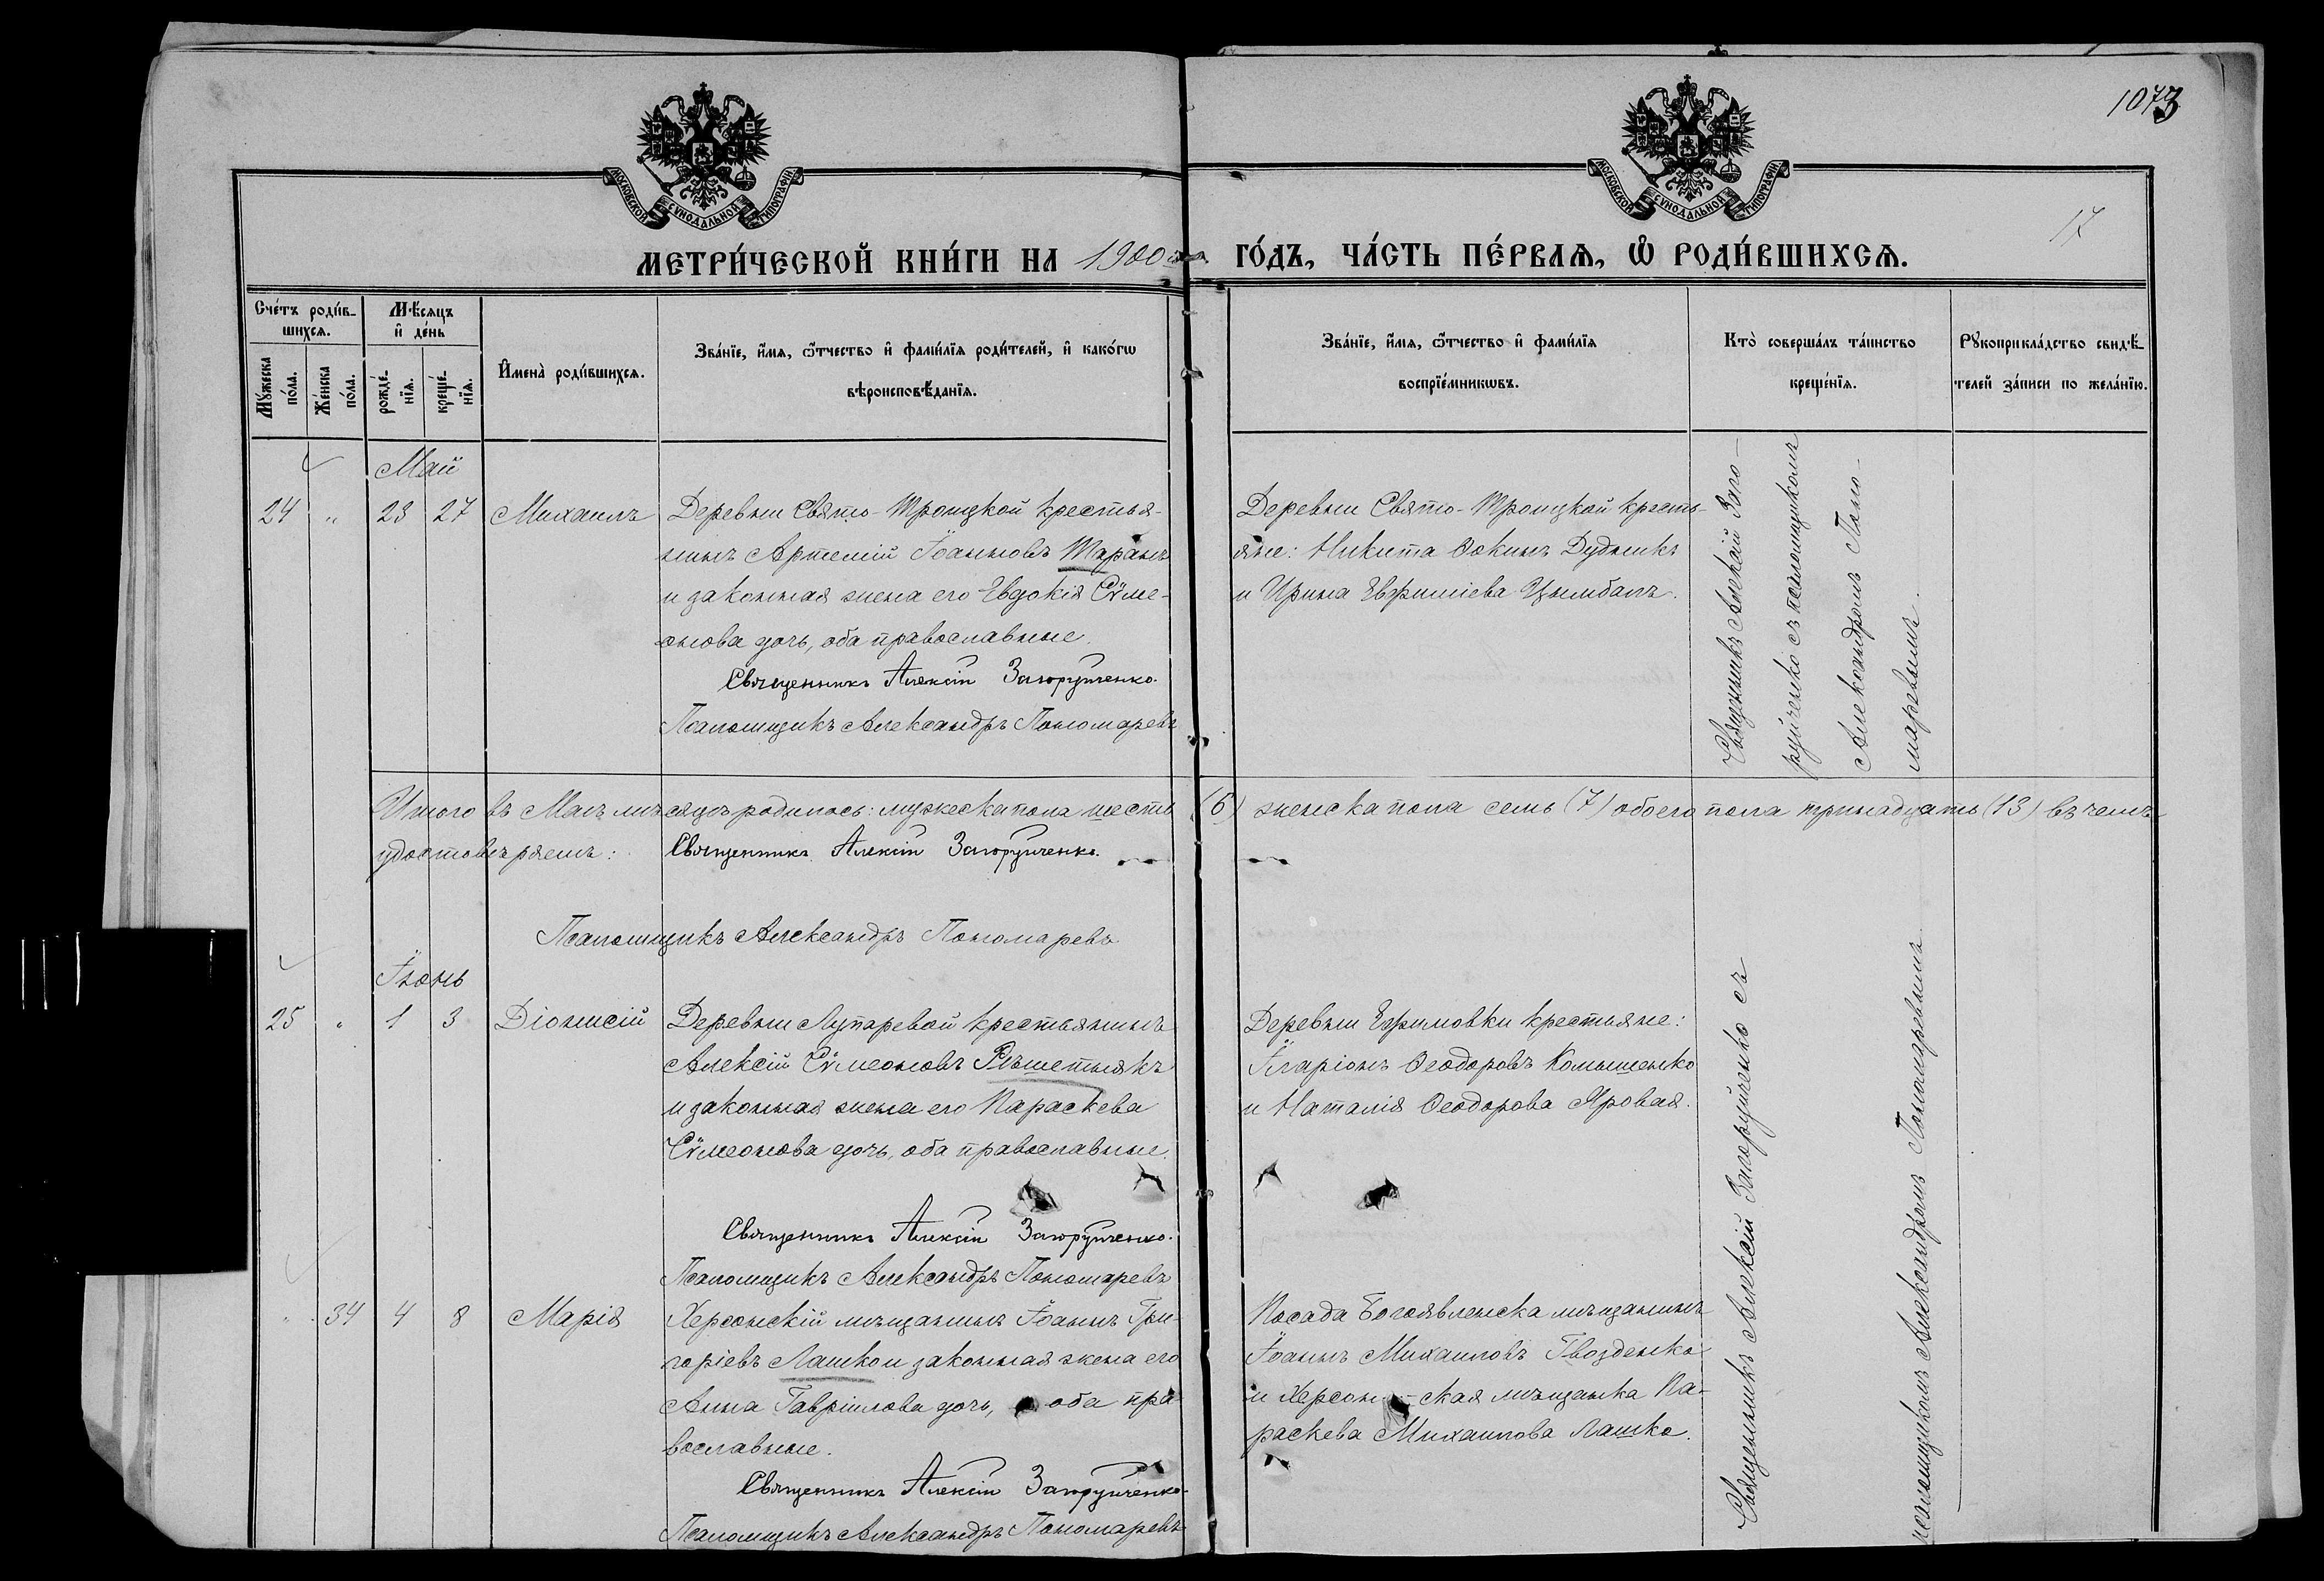 1073
17
МОСКОВСКОЙ СУНОДАЛЬНОЙ ТИПОГРАФІИ
МОСКОВСКОЙ СУНОДАЛЬНОЙ ТИПОГРАФІИ
МЕТРИ́ЧЕСКОЙ КНИ́ГИ НА 1900 ГО́ДЪ, ЧА́СТЬ ПЕ́РВАѦ, Ѡ҆ РОДИ́ВШИХСѦ.
Сче́тъ роди́в-
шихсѧ.
Мꙋ́жеска
по́ла.
Же́нска
по́ла.
Мѣ́сѧцъ
и҆ де́нь
рожде́-
нїѧ.
креще́-
нїѧ.
И҆мена̀ роди́вшихсѧ.
Зва́нїе, и҆́мѧ, ѻ҆́тчество и҆ фами́лїѧ роди́телей, и҆ како́гѡ
вѣроисповѣ́данїѧ.
Зва́нїе, и҆́мѧ, ѻ҆́тчество и҆ фами́лїѧ
воспрїе́мникѡвъ.
Кто̀ соверша́лъ та́инство
креще́нїѧ.
Рꙋкоприкла́дство свидѣ́-
телей за́писи по жела́нїю.
Май
24 " 23 27 Михаилъ
Деревни Свято-Троицкой крестья-
нинъ Артемій Іоанновъ Таранъ
и законная жена его Евдокія Сѵме-
онова дочь, оба православные.
Священникъ Алексій Загоруйченко.
Псаломщикъ Александръ Пономаревъ
Деревни Свято-Троицкой кресть-
яне: Никита Ѳокинъ Дудникъ
и Ирина Евфиміева Цымбалъ.
Священникъ Алексій Заго-
руйченко съ псаломщикомъ
Александромъ Поно-
маревымъ.
Итого въ Маѣ мѣсяцѣ родилось: мужеска пола шесть (6) женска пола семь (7) обоего пола тринадцать (13) въ чемъ
удостовѣряемъ: Священникъ Алексій Загоруйченко.
Псаломщикъ Александръ Пономаревъ
Іюнь
25 " 1 3 Діонисій
Деревни Лупаревой крестьянинъ
Алексій Сѵмеоновъ Рѣшетнякъ
и законная жена его Параскева
Сѵмеонова дочь, оба православные.
Священникъ Алексій Загоруйченко.
Псаломщикъ Александръ Пономаревъ
Деревни Ефимовки крестьяне:
Иларіонъ Ѳеодоровъ Комышенко
и Наталія Ѳеодорова Яровая.
" 34 4 8 Марія
Херсонскій мѣщанинъ Іоаннъ Гри-
горіевъ Лашко и законная жена его
Анна Гавріилова дочь, оба пра-
вославные.
Священникъ Алексій Загоруйченко.
Псаломщикъ Александръ Пономаревъ
Посада Богоявленска мѣщанинъ
Іоаннъ Михаиловъ Гвозденко
и Херсон-ская мѣщанка Па-
раскева Михаилова Лашко.
Священникъ Алексій Загоруйченко съ
псаломщикомъ Александромъ Пономаревымъ